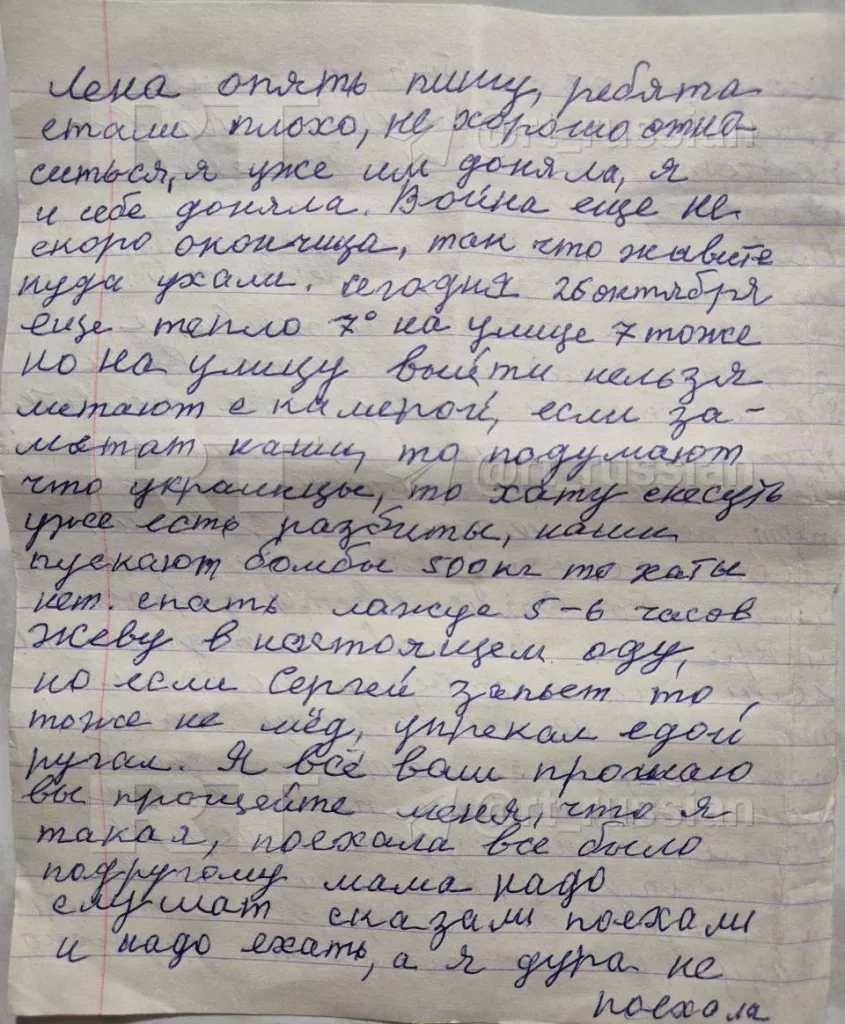 Лена опять пишу, ребята
стали плохо, не хорошо отна-
ситься, я уже им доняла, я
и себе доняла. Война еще не
скоро окончица, так что живите
куда ухали. сегодня 26 октября
еще тепло 7° на улице 7 тоже
но на улицу выйти нельзя
летают с камерой, если за-
метат наши, то подумают
что украинцы, то хату снесуть
уже есть разбиты, наши
пускают бомбы 500 кг то хаты
нет. спать лажус 5-6 часов
Жеву в настоящем аду,
но если Сергей запьет то,
тоже не мёд, упрекал едой
ругал. Я всё вам прощаю
вы прощейте меня, что я
такая, поехала все было
подругому мама надо
слушат сказали поехали
и надо ехать, а я дура не
поехала
RT
@rt_russian
RT
@rt_russian
RT
@rt_russian